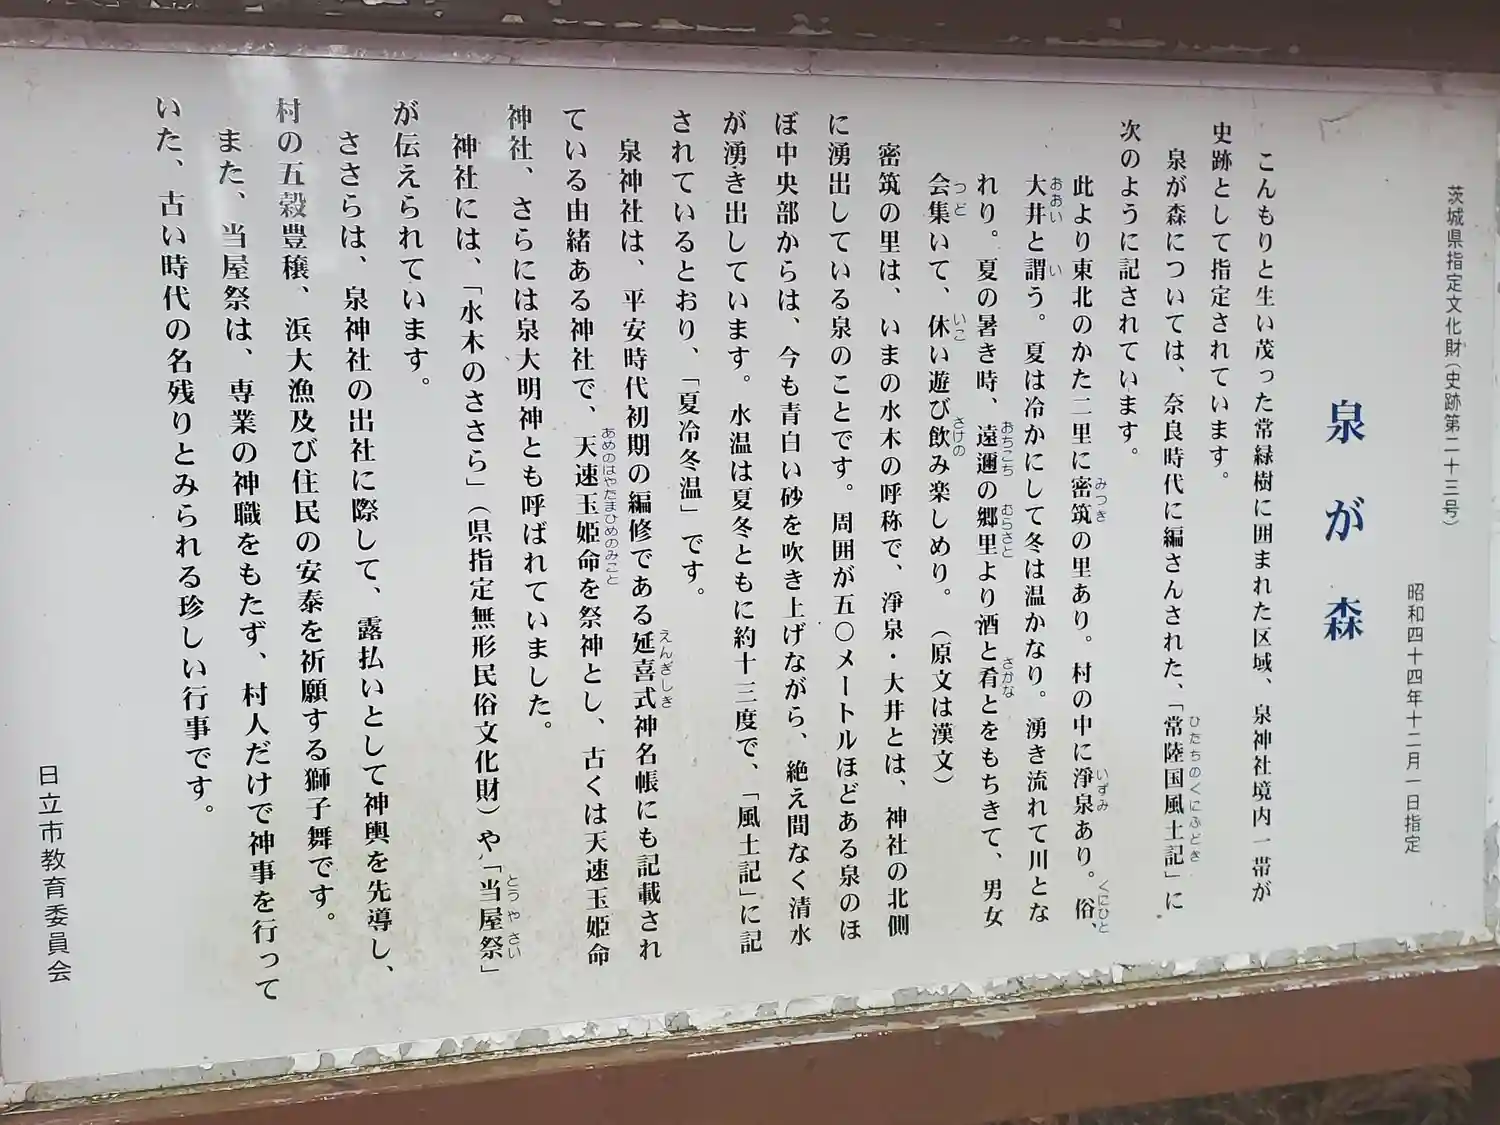 茨城県指定文化財（史跡第二十三号）
泉が森
昭和四十四年十二月一日指定
こんもりと生い茂った常緑樹に囲まれた区域、泉神社境内一帯が
史跡として指定されています。
泉が森については、奈良時代に編さんされた、「常陸国風土記」に
次のように記されています。
此より東北のかた二里に密筑の里あり。村の中に淨泉あり。俗、
大井と謂う。夏は冷かにして冬は温かなり。湧き流れて川とな
れり。夏の暑き時、遠邇の郷里より酒と肴とをもちきて、男女
会集いて、休い遊び飲み楽しめり。（原文は漢文）
密筑の里は、いまの水木の呼称で、淨泉・大井とは、神社の北側
に湧出している泉のことです。周囲が五〇メートルほどある泉のほ
ぼ中央部からは、今も青白い砂を吹き上げながら、絶え間なく清水
が湧き出しています。水温は夏冬ともに約十三度で、「風土記」に記
されているとおり、「夏冷冬温」です。
泉神社は、平安時代初期の編修である延喜式神名帳にも記載され
ている由緒ある神社で、天速玉姫命を祭神とし、古くは天速玉姫命
神社、さらには泉大明神とも呼ばれていました。
神社には、「水木のささら」（県指定無形民俗文化財）や「当屋祭」
が伝えられています。
ささらは、泉神社の出社に際して、露払いとして神輿を先導し、
村の五穀豊穣、浜大漁及び住民の安泰を祈願する獅子舞です。
また、当屋祭は、専業の神職をもたず、村人だけで神事を行って
いた、古い時代の名残りとみられる珍しい行事です。
日立市教育委員会